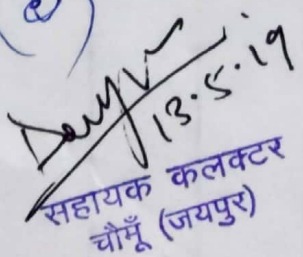 13.5.19
सहायक कलक्टर
चौमूँ (जयपुर)